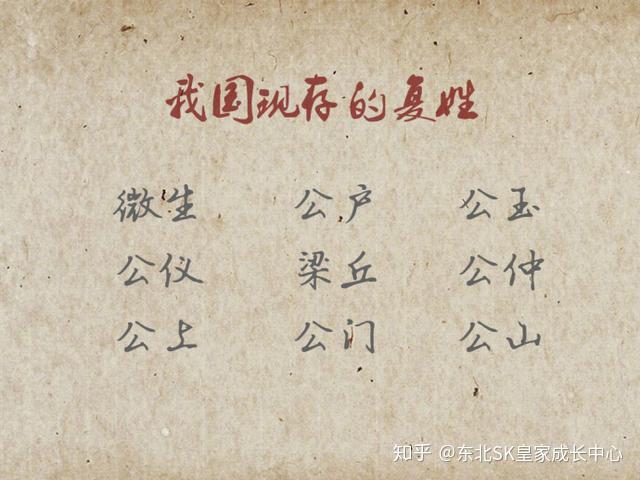 我国现存的复姓
微生 公户 公玉
公仪 梁丘 公仲
公上 公门 公山
知乎 @东北SK皇家成长中心